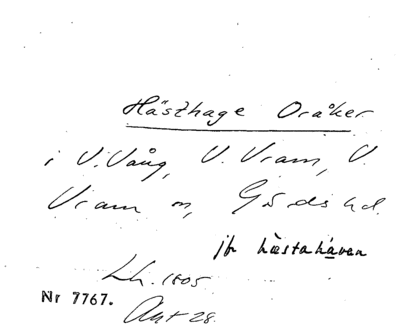 Hästhage Oråker
i V. Vång, V. Vram, V.
Vram sn, Gärds hd.
jfr hästahaven
Lh. 1805
Nr 7767.
Akt 28.